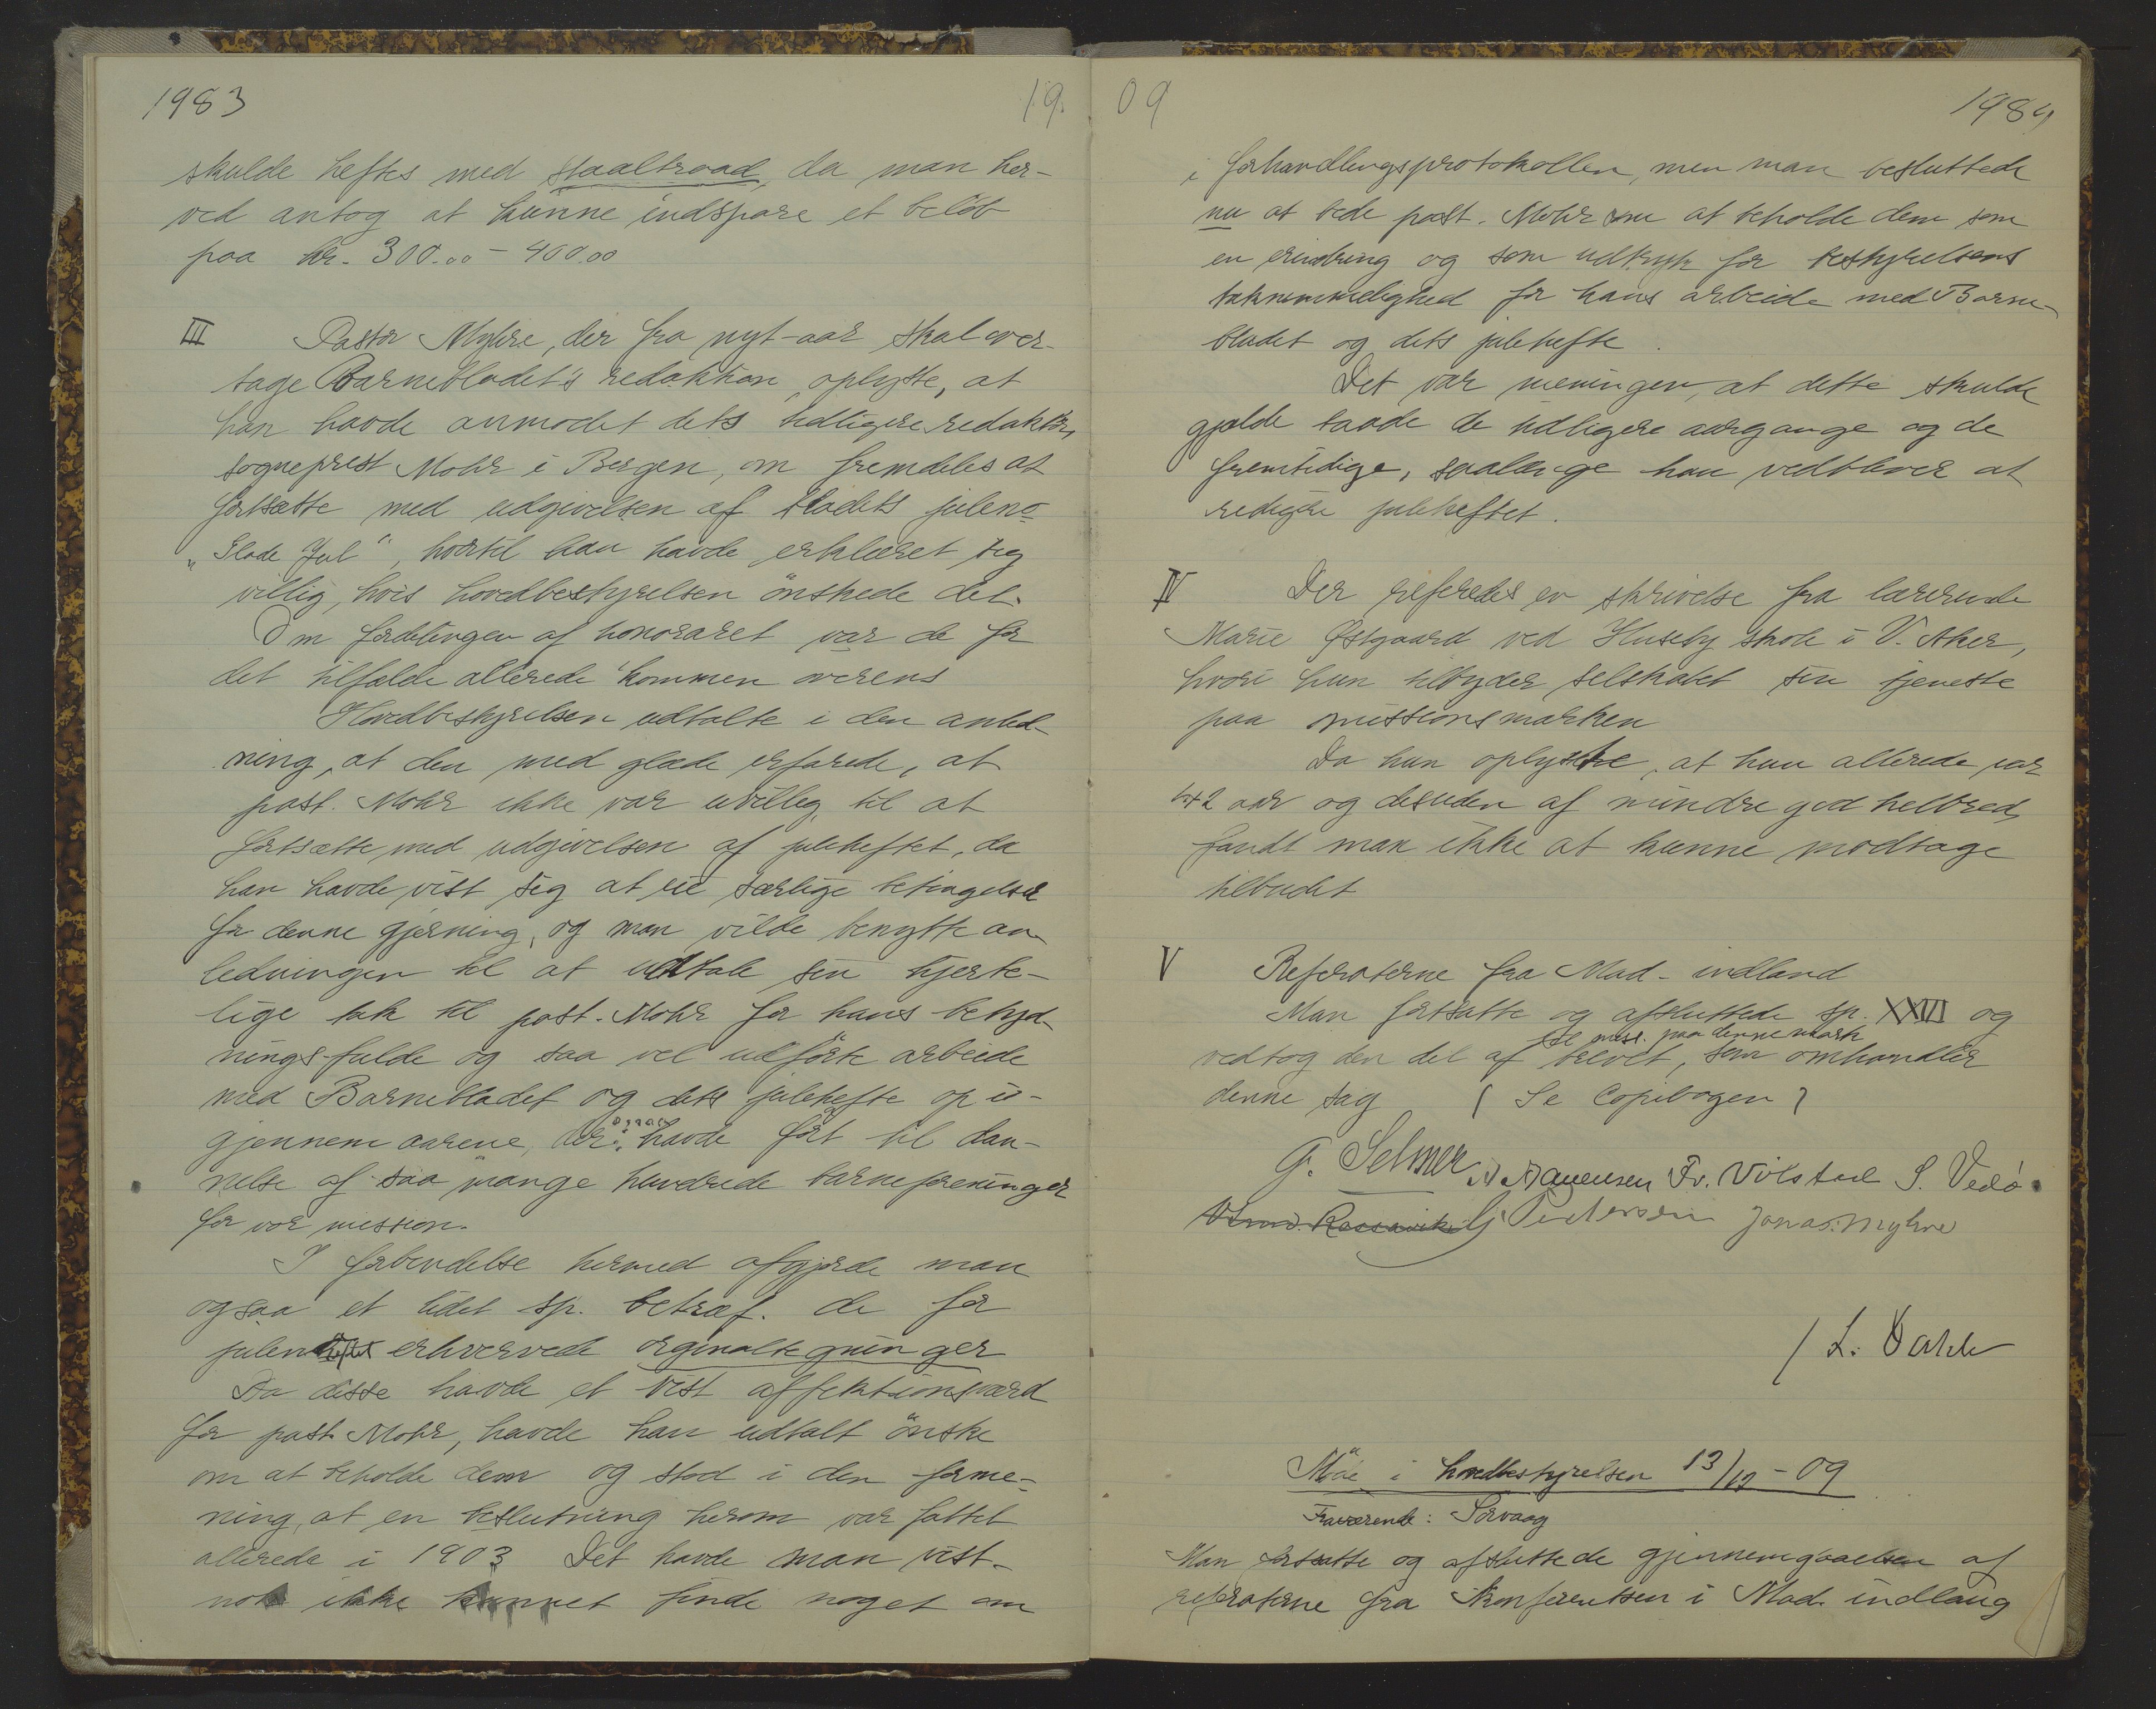 1983
19.
skulde heftes med staaltraad, da man her-
ved antog at kunne indspare et beløb
paa kr. 300.00 - 400.00
III Pastor Myhre, der fra nyt-aar skal over-
tage Barnebladet's redaktion, oplyste, at
han havde anmodet dets tidligere redaktør,
sogneprest Mohr i Bergen, om fremdeles at
fortsætte med udgivelsen af bladets juleno
"Glade Jul", hvortil han havde erklæret sig
villig, hvis hovedbestyrelsen ønskede det.
Om fordelingen af honoraret var de for
det tilfælde allerede kommen overens
Hovedbestyrelsen udtalte i den anled-
ning, at den med glæde erfarede, at
past. Mohr ikke var uvillig til at
fortsætte med udgivelsen af juleheftet, da
han havde vist sig at eie særlige betingelser
for denne gjerning, og man vilde benytte an-
ledningen til at udtale sin hjerte-
lige tak til past. Mohr for hans betyd-
nings-fulde og saa vel udførte arbeide
med Barnebladet og dets julehefte op i-
gjennem aarene, der ogsaa havde ført til dan-
nelse af saa mange hundrede barneforeninger
for vor mission.
I forbindelse hermed afgjorde man
ogsaa et lidet sp. betræf. de for
juleheftet erhvervede orginaltegninger
Da disse havde et vist affektionsværd
for past. Mohr, havde han udtalt ønske
om at beholde dem og stod i den forme-
ning, at en beslutning herom var fattet
allerede i 1903 Det havde man vist-
nok ikke kunnet finde noget om
09
1984
i forhandlingsprotokollen, men man besluttede
nu at bede past. Mohr om at beholde dem som
en erindring og som udtryk for bestyrelsens
taknemmelighed for hans arbeide med Barne-
bladet og dets julehefte.
Det var meningen, at dette skulde
gjælde baade de tidligere aargange og de
fremtidige, saalænge han vedblever at
redigere juleheftet.
IV Der referertes en skrivelse fra lærerinde
Marie Østgaard ved Huseby skole i V. Aker,
hvori hun tilbyder selskabet sin tjeneste
paa missionsmarken
Da hun oplyste, at hun allerede var
42 aar og desuden af mindre god helbred,
fandt man ikke at kunne modtage
tilbudet
V Referaterne fra Mad-indland
Man fortsatte og afsluttede sp. XXVI og
til miss. paa denne mark
vedtog den del af brevet, som omhandler
denne sag (Se Copibogen)
G. Selmer Fr. Vølstad S. Vedø.
Pedersen Jonas Myhre
/ L. Dahle
Møde i hovedbestyrelsen 13/12 - 09
Fraværende: Sørvaag
Man fortsatte og afsluttede gjennemgaaelsen af
referaterne fra konferentsen i Mad. indland